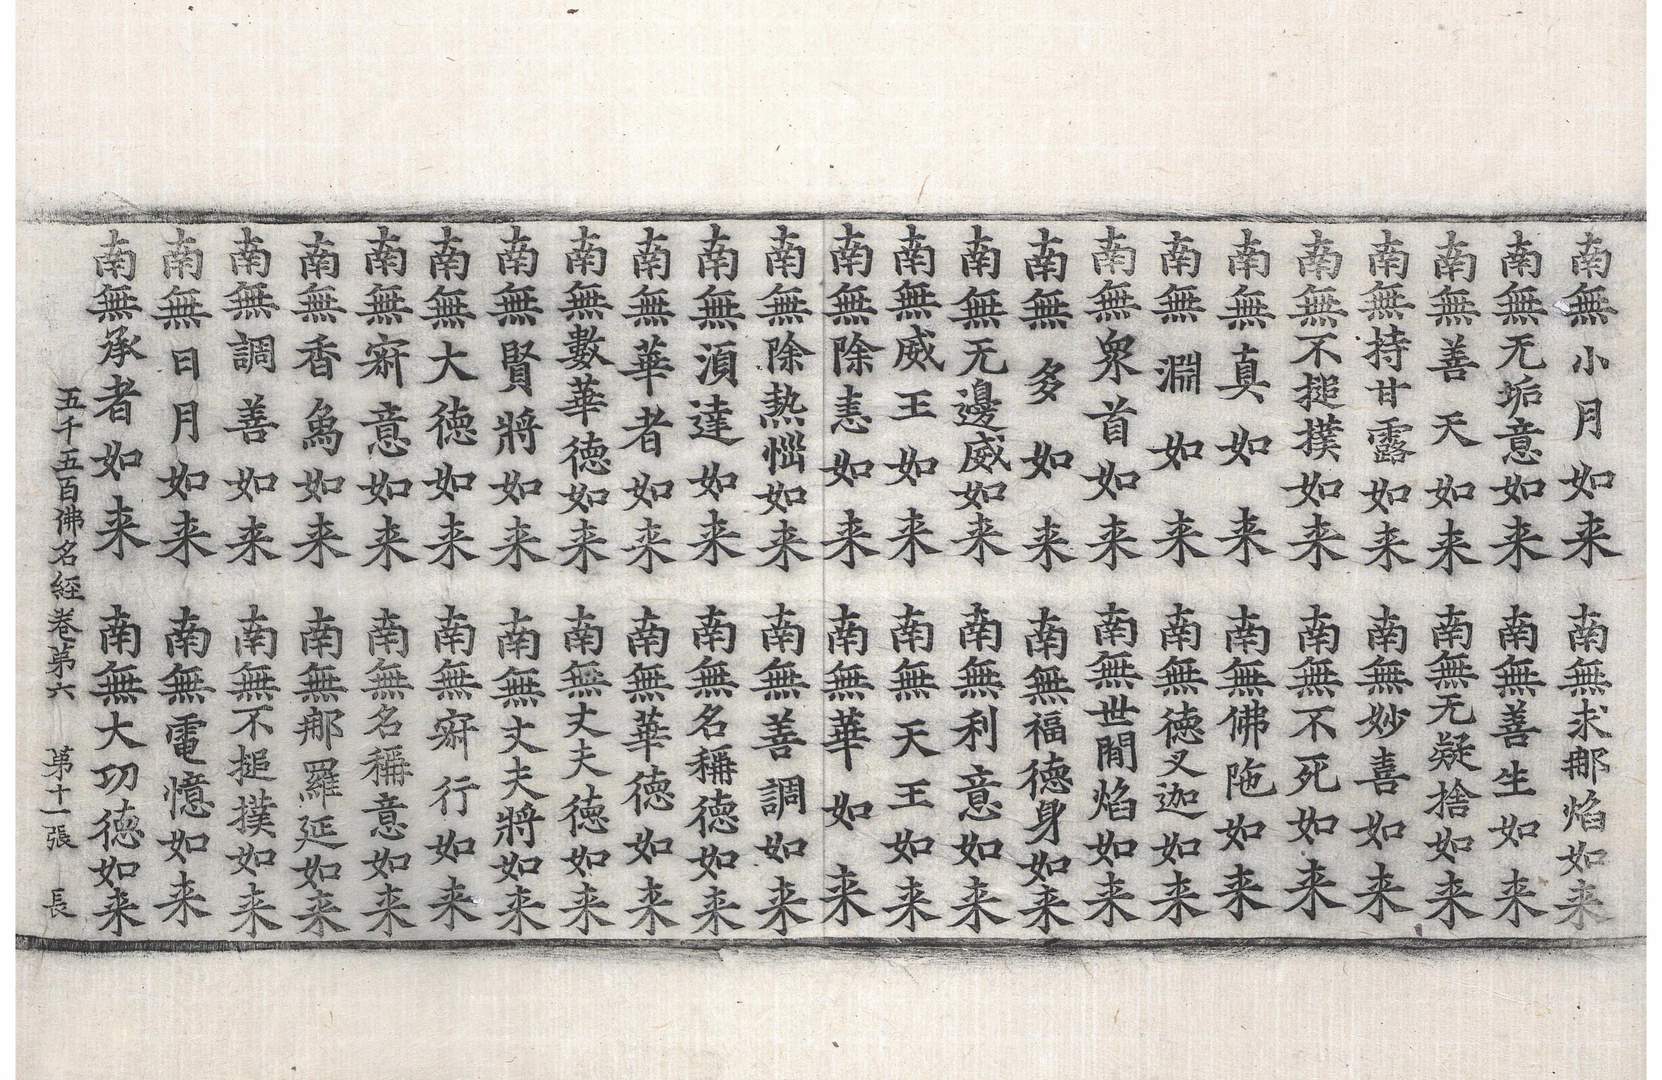 南無小月如来 南無求那焰如来
南無无垢意如来 南無善生如来
南無善天如来 南無无凝捨如来
南無持甘露如来 南無妙喜如来
南無不搥撲如来 南無不死如来
南無真如来 南無佛陁如来
南無淵如来 南無德叉迦如来
南無衆首如来 南無世間焰如来
南無多如来 南無福德身如来
南無无邊威如来 南無利意如来
南無威王如来 南無天王如来
南無除恚如来 南無華如来
南無除熱惱如来 南無善調如来
南無須達如来 南無名稱德如来
南無華者如来 南無華德如来
南無數華德如来 南無丈夫德如来
南無賢將如来 南無丈夫將如来
南無大德如来 南無寂行如来
南無寂意如来 南無名稱意如来
南無香象如来 南無那羅延如来
南無調善如来 南無不搥撲如来
南無日月如来 南無電憶如来
南無承者如来 南無大功德如来
五千五百佛名經卷第六 第十一張 長